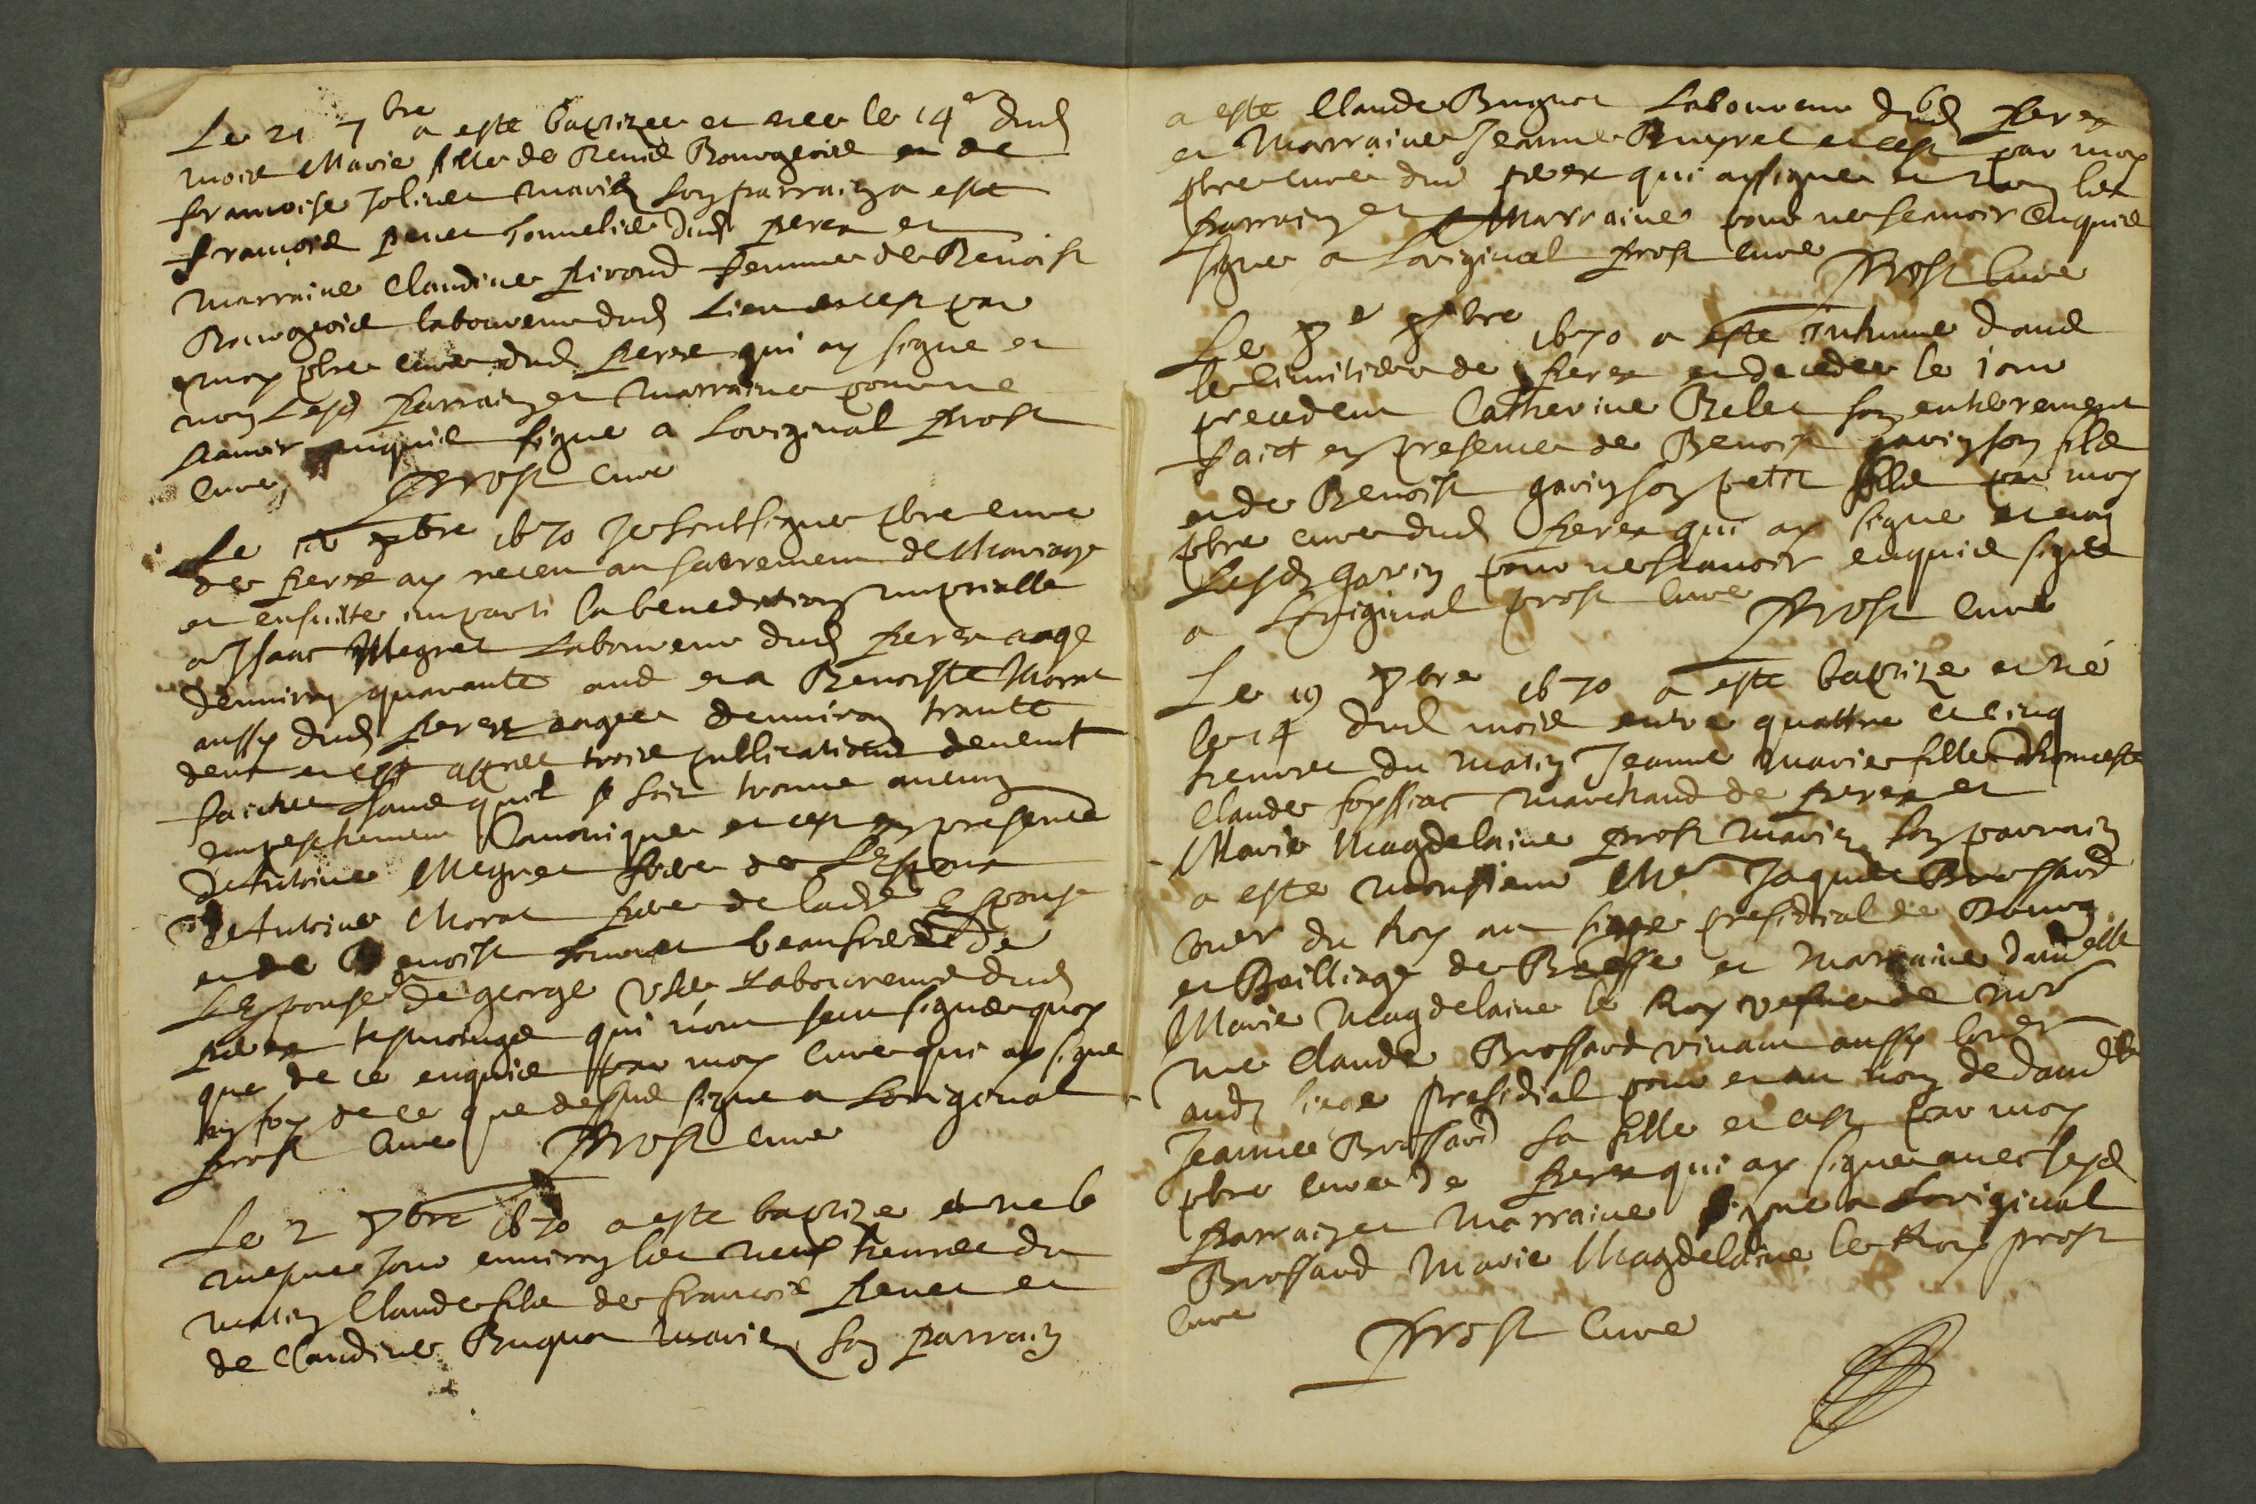 Le 21 7bre a este baptizee et nee le 14e dud
mois Marie fille de Benoist Bourgeois et de
francoise Joliuet mariez son parrain a este
françois peuet Tonnelier dud perex et
Marraine Claudine Firoud femme de Benoist
Bourgeois laboureur dud Lieu et cest par
moy pbre cure dud perex qui ay signe et
non lesd parrain et marraine pour ne
scauoir enquis signe a Loriginal prost
cure prost cure
Le 8bre 1670 Je soubsigne pbre cure
de perex ay receu au sacrement de Mariage
et ensuitte imparti la benediction nuptialle
a Isaac Megret Laboureur dud perex aage
denuiron quarante ans et a Benoiste Morat
aussy dud perex aagee denuiron trante
deux et cest apres trois publications deuemt
faictes sans quil se soit trouue aucung
empeschement Canonique et cest en presence
dAntoine Megret frere de LEspoux
dAntoine Morat frere de ladte Espouse
et de Benoist beaufrere de
LEspouse de george Laboureurs dud
perex tesmoings qui nont sceu signer quoy
que de ce enquis par moy cure qui ay signe
en foy de ce que dessus signe a Loriginal
prost cure prost cure
Le 2 9bre 1670 a este baptize et ne le
mesme Jour enuiron les neuf heures du
matin Claude fils de francois peuet et
de Claudine Buguet mariez son parrain
a este Claude Buguet Laboureur dud perex
et Marraine Jeanne et cest par moy
pbre cure dud perex qui ay signe et non les
parrain et Marraine pour ne scauoir enquis
signe a Loriginal prost cure prost cure
Le 9bre 1670 a este Inhume dans
le cimitiere de perex et decedee le jour
precedent Catherine Relet son enterrement
faict en presence de Benoist gavin son fils
et de Benoist gavin son petit fils par moy
pbre cure dud perex qui ay signe et non
lesdz gavin pour ne scauoir enquis signe
a Loriginal prost cure prost cure
Le 19 9bre 1670 a este baptize et né
le 14 dud mois entre quattre et cinq
heures du matin Jeanne Marie fille dhonneste
Claude foyssiat marchand de perex et
Marie Magdelaine prost mariez son parrain
a este monsieur Mre Jaques Brossard
coner du Roy au siege presidial de Bourg
et Bailliage de Bresse et marraine damelle
Marie Magdelaine le Roy vefue de mr
me Claude Brossard viuant aussy coner
audz siege presidial pour et au nom de damlle
Jeanne Brossard sa fille et cest par moy
pbre cure de perex qui ay signe auec lesd
parrain et Marraine signe a Loriginal
Brossard Marie Magdelaine le Roy prost
cure
prost cure